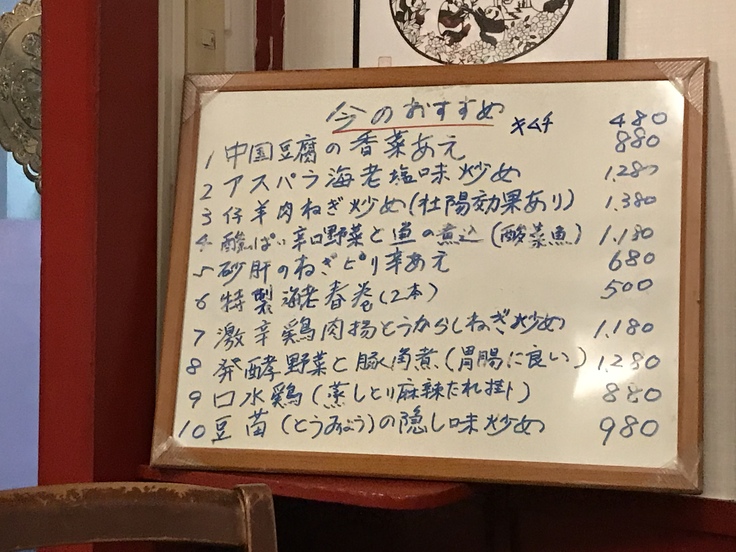 今のおすすめ
キムチ 480
1 中国豆腐の香菜あえ 880
2 アスパラ海老塩味炒め 1.280
3 仔羊肉ねぎ炒め(壮陽効果あり) 1.380
4 酸っぱい辛口野菜と魚の煮込(酸菜魚) 1.180
5 砂肝のねぎピリ辛あえ 680
6 特製海老春巻(2本) 500
7 激辛鶏肉揚とうからしねぎ炒め 1.180
8 発酵野菜と豚角煮(胃腸に良い) 1.280
9 口水鶏(蒸しとり麻辣たれ掛ト) 880
10 豆苗(とうみょう)の隠し味炒め 980